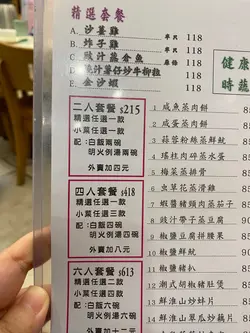 精選套餐
A. 沙薑雞 半隻 118
B. 炸子雞 半隻 118
C. 豉汁蒸倉魚 118
D. 燒汁薯仔炒牛柳粒 118
E. 金沙蝦 118
健康
時蔬
二人套餐 $215
精選任選一款
小菜任選一款
配：白飯兩碗
明火例湯兩碗
外賣加四元
四人套餐 $418
精選任選一款
小菜任選三款
配：白飯四碗
明火例湯四碗
外賣加八元
六人套餐 $613
精選任選兩款
小菜任選四款
配：白飯六碗
明火例湯六碗
外賣加十二元
1 咸魚蒸肉餅
2 咸蛋蒸肉餅
3 蒜蓉粉絲蒸鮮魷
4 瑤柱肉碎蒸水蛋
5 梅菜蒸排骨
6 虫草花蒸滑雞
7 蝦醬豬頸肉蒸茄子
8 豉汁帶子蒸豆腐
9 椒鹽豆腐拼腰果
10 椒鹽鮮魷
11 椒鹽豬扒
12 潮式胡椒豬肚煲
13 鮮淮山炒蚌片
14 鮮淮山草菇炒藕片